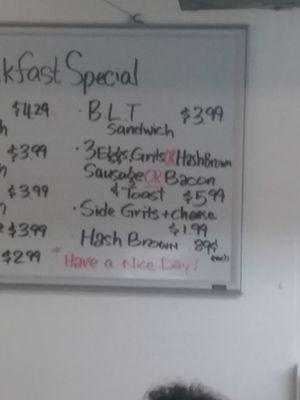 kfast Special
$4.29
h
$3.99
n
$3.99
n
$3.99
$2.99
· B L T $3.99
Sandwich
· 3 Eggs, Grits OR Hash Brown
Sausage OR Bacon
& Toast $5.99
· Side Grits + cheese
$1.99
· Hash Brown 89¢
each
* Have a Nice Day!